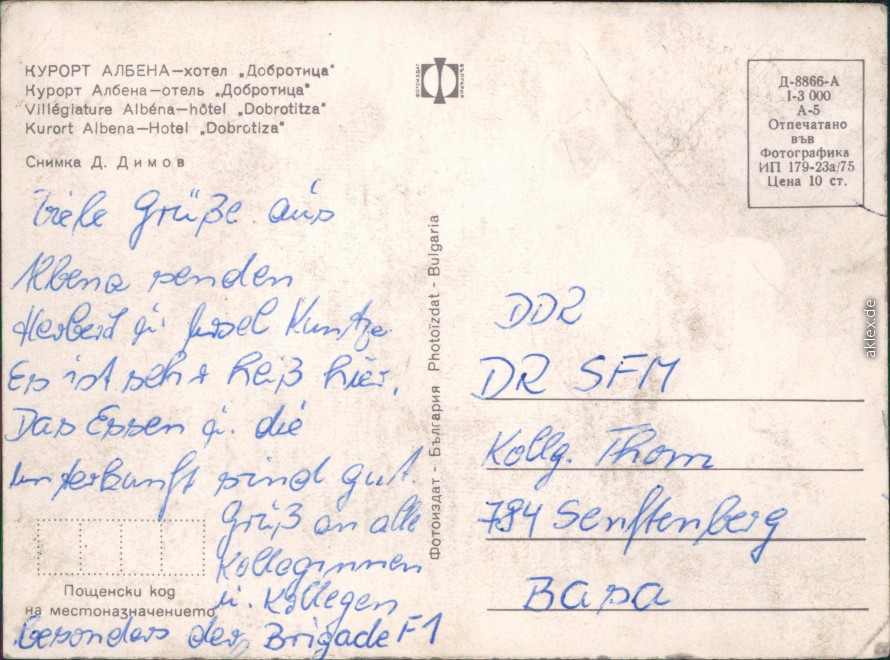 КУРОРТ АЛБЕНА—хотел „Добротица"
Курорт Албена—отель „Добротица"
Villégiature Albéna—hôtel „Dobrotitza"
Kurort Albena—Hotel „Dobrotiza"
Снимка Д. Димов
Viele Grüße aus
Albena senden
Herbert u. Ursel Kuntze
Es ist sehr heiß hier.
Das Essen u. die
Unterkunft sind gut.
Gruß an alle
Kolleginnen
u. Kollegen
besonders der Brigade F1
Пощенски код
на местоназначението
ФОТОИЗДАТ
БЪЛГАРИЯ
Фотоиздат - България Photoïzdat - Bulgaria
Д-8866-А
I-3 000
А-5
Отпечатано
във
Фотографика
ИП 179-23а/75
Цена 10 ст.
DDR
DR SFM
Kollg. Thom
784 Senftenberg
Basa
aklex.de